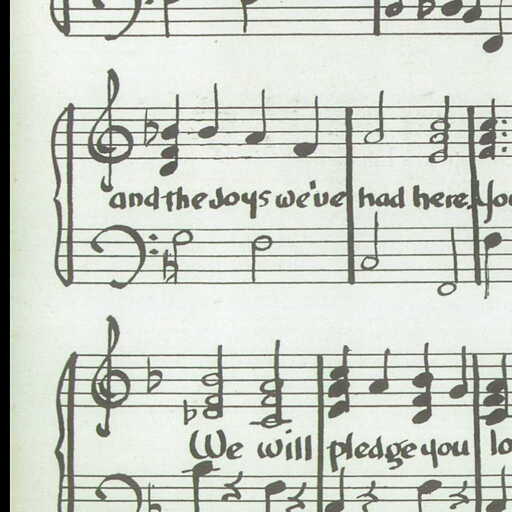 and the Joys we've had here. You
We will pledge you lo